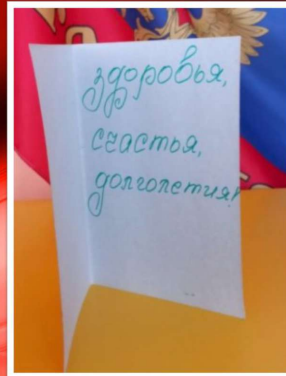 здоровья,
счастья,
долголетия!